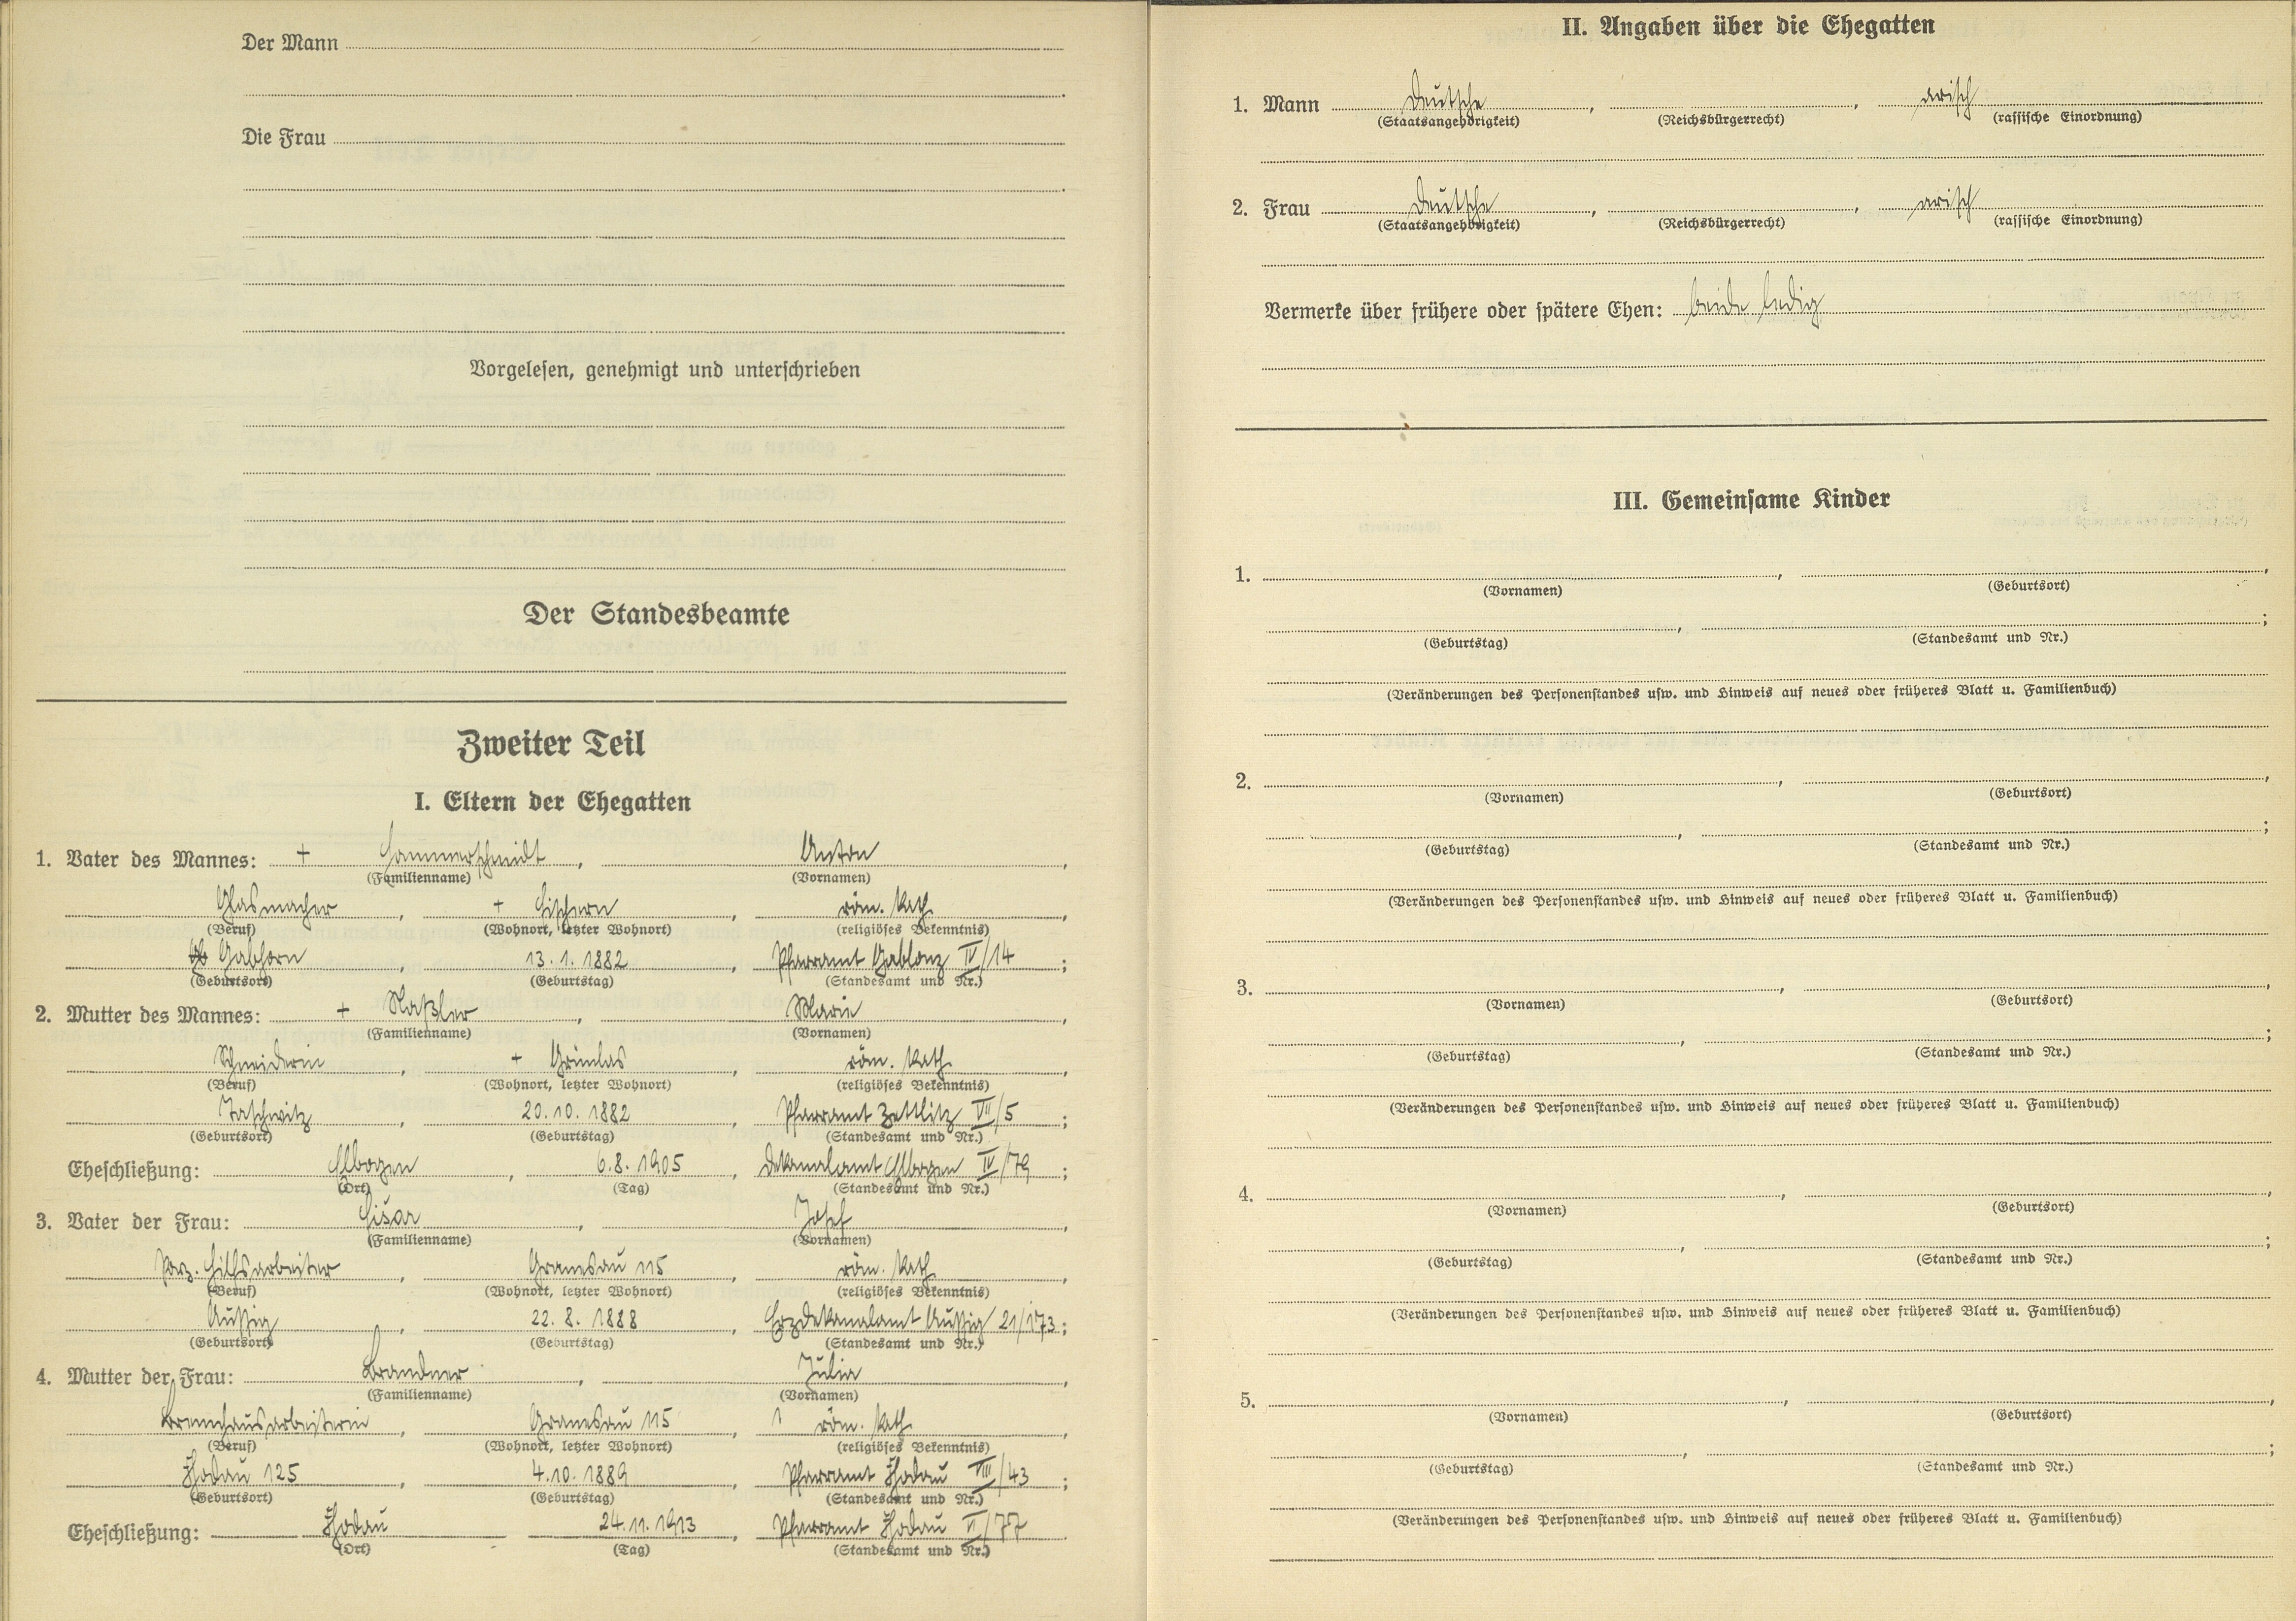 Der Mann
Die Frau
Vorgelesen, genehmigt und unterschrieben
Der Standesbeamte
Zweiter Teil
I. Eltern der Ehegatten
1. Vater des Mannes: + Hammerschmidt, Anton,
(Familienname) (Vornamen)
Glasmacher, + Fischern, röm. kath.,
(Beruf) (Wohnort, letzter Wohnort) (religiöses Bekenntnis)
Gabhorn, 13.1.1882, Pfarramt Gablonz IV/14;
(Geburtsort) (Geburtstag) (Standesamt und Nr.)
2. Mutter des Mannes: + Naßler, Marie,
(Familienname) (Vornamen)
Schneiderin, + Grünlas, röm. kath.,
(Beruf) (Wohnort, letzter Wohnort) (religiöses Bekenntnis)
Taschwitz, 20.10.1882, Pfarramt Zettlitz VII/5;
(Geburtsort) (Geburtstag) (Standesamt und Nr.)
Eheschließung: Elbogen, 6.8.1905, Dekanalamt Elbogen IV/79;
(Ort) (Tag) (Standesamt und Nr.)
3. Vater der Frau: Cišar, Josef,
(Familienname) (Vornamen)
Porz. Hilfsarbeiter, Granesau 115, röm. kath.,
(Beruf) (Wohnort, letzter Wohnort) (religiöses Bekenntnis)
Außig, 22.8.1888, Erzdekanalamt Außig 21/173;
(Geburtsort) (Geburtstag) (Standesamt und Nr.)
4. Mutter der Frau: Brandner, Julia,
(Familienname) (Vornamen)
Brennhausarbeiterin, Granesau 115, röm. kath.,
(Beruf) (Wohnort, letzter Wohnort) (religiöses Bekenntnis)
Chodau 125, 4.10.1889, Pfarramt Chodau VIII/43;
(Geburtsort) (Geburtstag) (Standesamt und Nr.)
Eheschließung: Chodau 24.11.1913, Pfarramt Chodau V/77
(Ort) (Tag) (Standesamt und Nr.)
II. Angaben über die Ehegatten
1. Mann Deutsche, , arisch
(Staatsangehörigkeit) (Reichsbürgerrecht) (rassische Einordnung)
2. Frau Deutsche, , arisch
(Staatsangehörigkeit) (Reichsbürgerrecht) (rassische Einordnung)
Vermerke über frühere oder spätere Ehen: beide ledig
III. Gemeinsame Kinder
1. , ,
(Vornamen) (Geburtsort)
, ;
(Geburtstag) (Standesamt und Nr.)
(Veränderungen des Personenstandes usw. und Hinweis auf neues oder früheres Blatt u. Familienbuch)
2. , ,
(Vornamen) (Geburtsort)
, ;
(Geburtstag) (Standesamt und Nr.)
(Veränderungen des Personenstandes usw. und Hinweis auf neues oder früheres Blatt u. Familienbuch)
3. , ,
(Vornamen) (Geburtsort)
, ;
(Geburtstag) (Standesamt und Nr.)
(Veränderungen des Personenstandes usw. und Hinweis auf neues oder früheres Blatt u. Familienbuch)
4. , ,
(Vornamen) (Geburtsort)
, ;
(Geburtstag) (Standesamt und Nr.)
(Veränderungen des Personenstandes usw. und Hinweis auf neues oder früheres Blatt u. Familienbuch)
5. , ,
(Vornamen) (Geburtsort)
, ;
(Geburtstag) (Standesamt und Nr.)
(Veränderungen des Personenstandes usw. und Hinweis auf neues oder früheres Blatt u. Familienbuch)